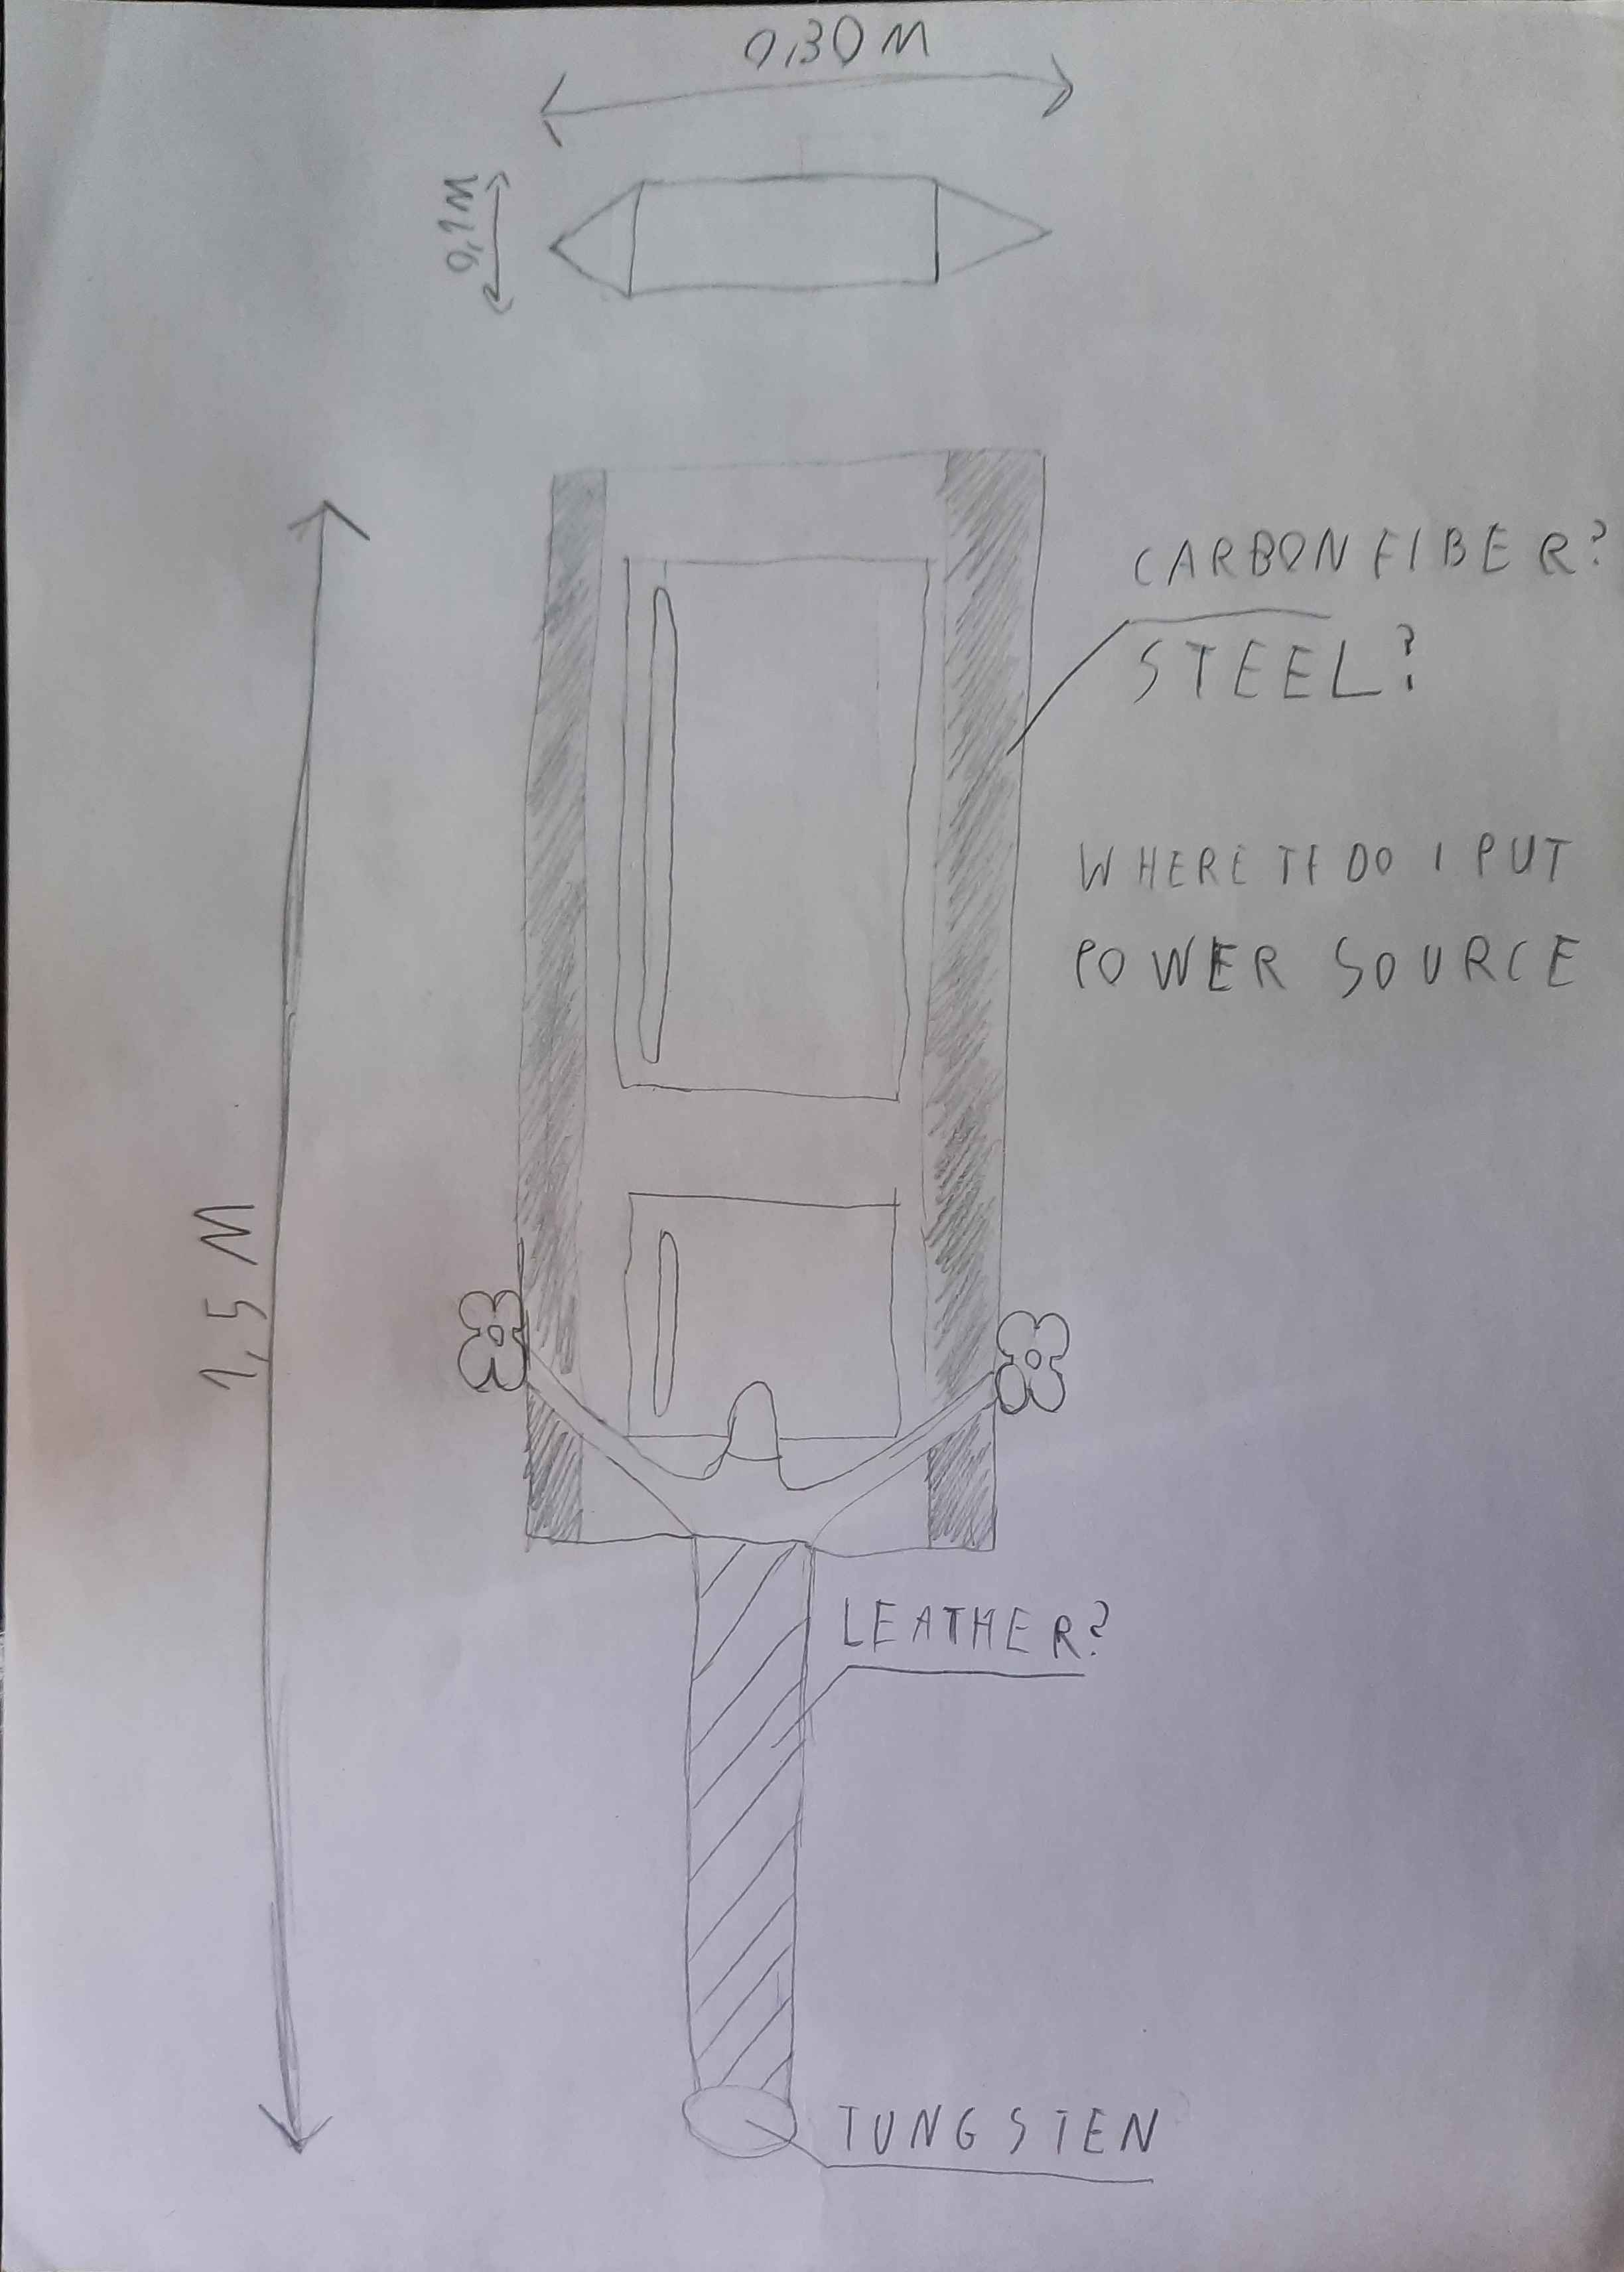 0,30 M
0,1M
CARBON FIBER?
STEEL?
WHERE TF DO I PUT
POWER SOURCE
1,5 M
LEATHER?
TUNGSTEN